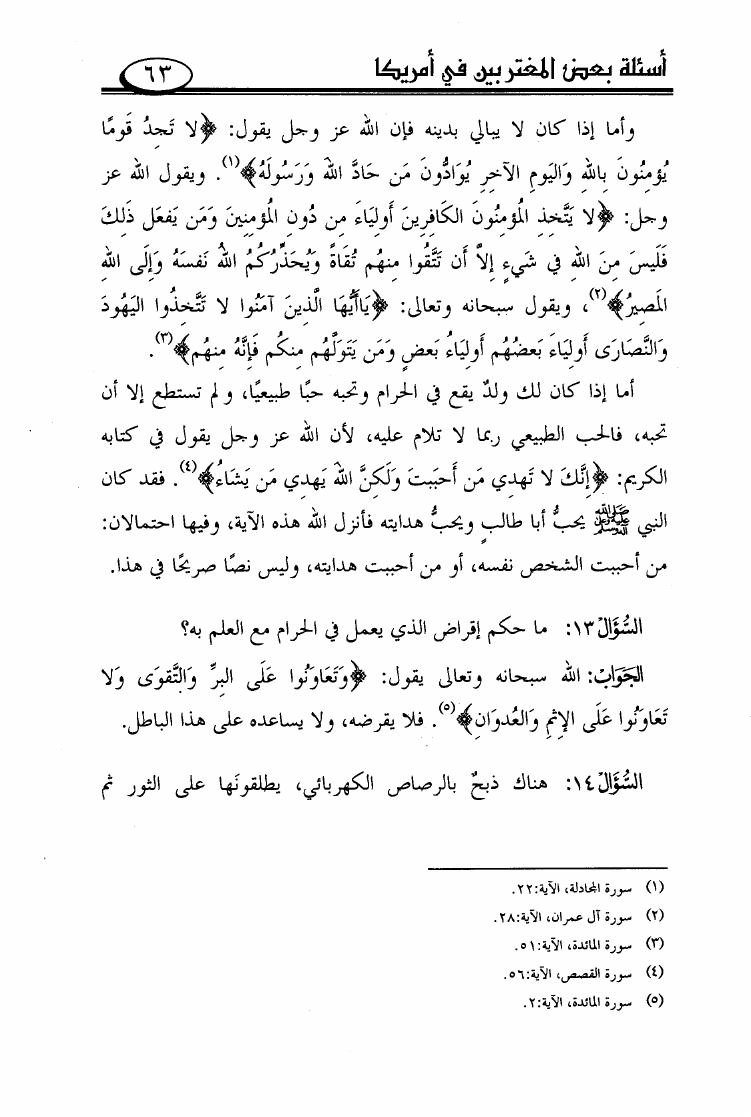 أسئلة بعض المغتربين في أمريكا
٦٣
وأما إذا كان لا يبالي بدينه فإن الله عز وجل يقول: ﴿لا تَجدُ قَومًا
يُؤمنُونَ بالله وَاليَومِ الآخرِ يُوَادُّونَ مَن حَادَّ اللهَ وَرَسُولَهُ﴾(١). ويقول الله عز
وجل: ﴿لا يَتَّخذِ المُؤمنُونَ الكَافرِينَ أَوليَاءَ من دُونِ المُؤمنِينَ وَمَن يَفعَل ذَلكَ
فَلَيسَ منَ الله في شَيءٍ إلاَّ أَن تَتَّقُوا منهُم تُقَاةً وَيُحَذِّرُكُمُ اللهُ نَفسَهُ وَإلَى الله
المَصيرُ﴾(٢)، ويقول سبحانه وتعالى: ﴿يَاأَيُّهَا الَّذينَ آمَنُوا لا تَتَّخذُوا اليَهُودَ
وَالنَّصَارَى أَوليَاءَ بَعضُهُم أَوليَاءُ بَعضٍ وَمَن يَتَوَلَّهُم منكُم فَإنَّهُ منهُم﴾(٣).
أما إذا كان لك ولدٌ يقع في الحرام وتحبه حبًا طبيعيًا، ولم تستطع إلا أن
تحبه، فالحب الطبيعي ربما لا تلام عليه، لأن الله عز وجل يقول في كتابه
الكريم: ﴿إنَّكَ لا تَهدي مَن أَحبَبتَ وَلَكنَّ اللهَ يَهدي مَن يَشَاءُ﴾(٤). فقد كان
النبي ﷺ يحبُّ أبا طالبٍ ويحبُّ هدايته فأنزل الله هذه الآية، وفيها احتمالان:
من أحببت الشخص نفسه، أو من أحببت هدايته، وليس نصًا صريحًا في هذا.
السُّؤَالُ ١٣: ما حكم إقراض الذي يعمل في الحرام مع العلم به؟
الجَوَابُ: الله سبحانه وتعالى يقول: ﴿وَتَعَاوَنُوا عَلَى البرِّ وَالتَّقوَى وَلا
تَعَاوَنُوا عَلَى الإثمِ وَالعُدوَانِ﴾(٥). فلا يقرضه، ولا يساعده على هذا الباطل.
السُّؤَالُ ١٤: هناك ذبحٌ بالرصاص الكهربائي، يطلقونَها على الثور ثم
(١) سورة المجادلة، الآية:٢٢.
(٢) سورة آل عمران، الآية:٢٨.
(٣) سورة المائدة، الآية:٥١.
(٤) سورة القصص، الآية:٥٦.
(٥) سورة المائدة، الآية:٢.